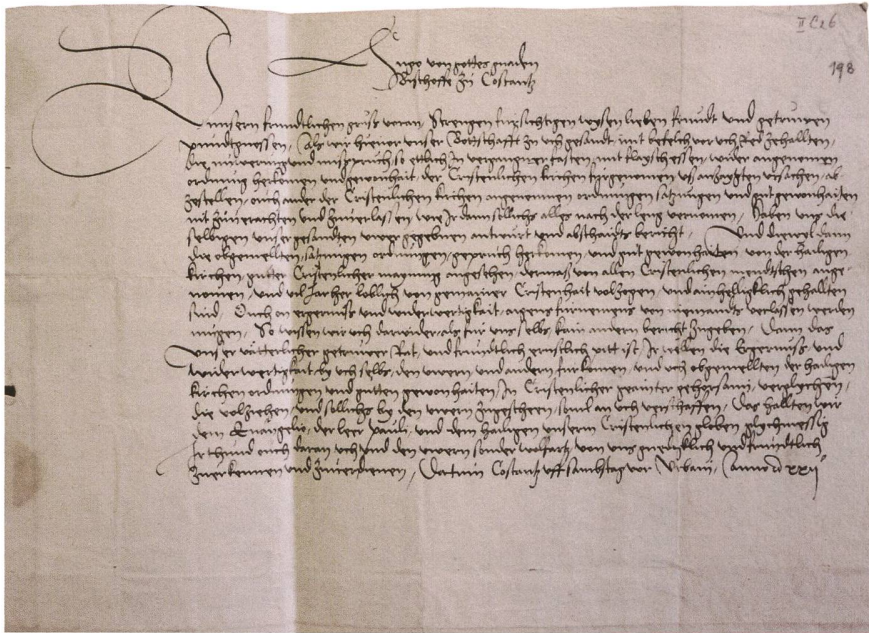 II C e 6
198
Hugo von gottes gnaden
Bischoffe zu Costantz
Unsern fruntlichen grus voran, Strengen fursichtigen wysen lieben frundt und getruwen
pundtgnossen, Als wir hievor unser Bottschafft zu uch gesandt, mit befelch vor uch Red zehallten,
die und so ettlich In vergangner fasten, mit flaisch essen, wider angenomen
ordnung herkomen und gewonhait, der Cristenlichen kirchen furgenomen usachen, ab
zestellen, ouch ander der Cristenlichen kirchen angenomen ordnungen satzungen und gut gewonhaiten
nit zuverachten und zuverlassen, wie Ir dann sollichs alles nach der leng vernomen, Haben uns die
selbigen unser gesandten uwer gegeben antwurt und abschaids bericht, Und diewil dann
die obgemellten, satzungen ordnungen, gepruch herkomen, und gut gewonhaiten von der hailigen
kirchen guter Cristenlicher maynung angesehen, dermaß von allen Cristenlichen mentschen ange-
nomen, und vil Jar her loblich von gemainer Cristenhait volzogen, und ainhelligklich gehallten
sind, Ouch on ergernuß und widerwertigkait, aigens furnemens von niemandts verlassen werden
mugen, So wissen wir uch darwider, als fur uns selbs, kain andern bericht zugeben, Dann das
unser vätterlicher getruwer Rat, und fruntlich ernstlich pitt ist, Ir wellen die Ergernuß und
widerwertigkait by uch selbs, den uwern und andern furkomen, und uch obgemellten der hailigen
kirchen ordnungen und gutten gewonhaiten, In Cristenlicher gehorsam, verglychen,
die volziehen, und sollichs by den uwern zugescheen, sovil an uch verschaffen, Das hallten wir
dem Evangelio, der leer Pauli, und dem hailigen unserm Cristenlichen globen glychmessig
Ir thund ouch daran uch und den uwern sonder wolfart, von uns gnedicklich und fruntlich
zuerkennen und zuverdienen, Datum Costantz uff sambstag vor Urbani, Anno xxij